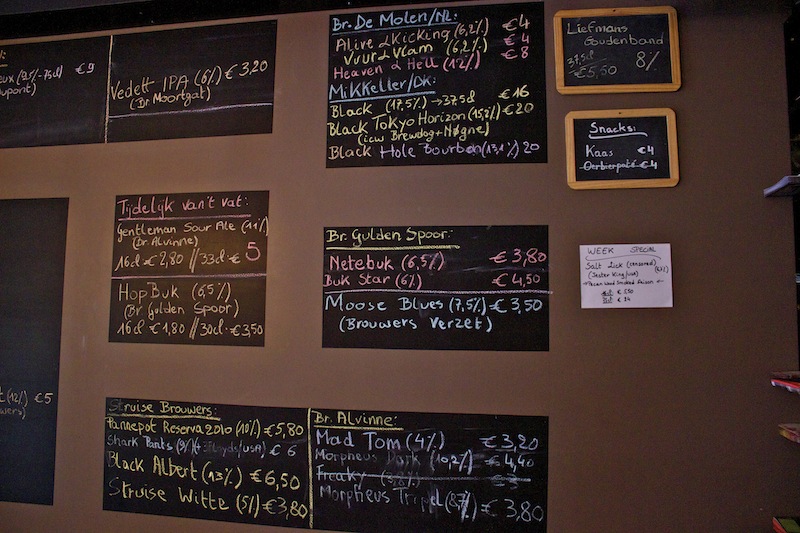 €9
Vedett IPA (6%) €3,20
(Br Moortgat)
Br. De Molen/NL:
Alive & Kicking (6,2%) €4
Vuur & Vlam (6,2%) €4
Heaven & Hell (12%) €8
Mikkeller/DK:
Black (17,5%) → 37.5cl €16
Black Tokyo Horizon (15,2%) €20
(icw Brewdog + Nøgne)
Black Hole Bourbon (13,1%) 20
Liefmans
Goudenband
37.5cl 8%
€5,50
Snacks:
Kaas €4
Oerbierpaté €4
Tijdelijk van't vat:
Gentleman Sour Ale (11%)
(Br Alvinne)
16cl €2,80 // 33cl €5
HopBuk (6,5%)
(Br Gulden Spoor)
16cl €1,80 // 30cl €3,50
Br. Gulden Spoor:
Netebuk (6,5%) €3,80
Buk Star (6%) €4,50
Moose Blues (7,5%) €3,50
(Brouwers Verzet)
WEEK SPECIAL
Salt Lick (censored)
(Jester King/USA)
Pecan Wood Smoked Saison
(12%) €5
Struise Brouwers:
Pannepot Reserva 2010 (10%) €5,80
Shark Pants (9%) €6
Black Albert (13%) €6,50
Struise Witte (5%) €3,80
Br. Alvinne:
Mad Tom (4%) €3,20
Morpheus Dark (10,2%) €4,40
Freaky (3,8%)
Morpheus Tripel (8,7%) €3,80